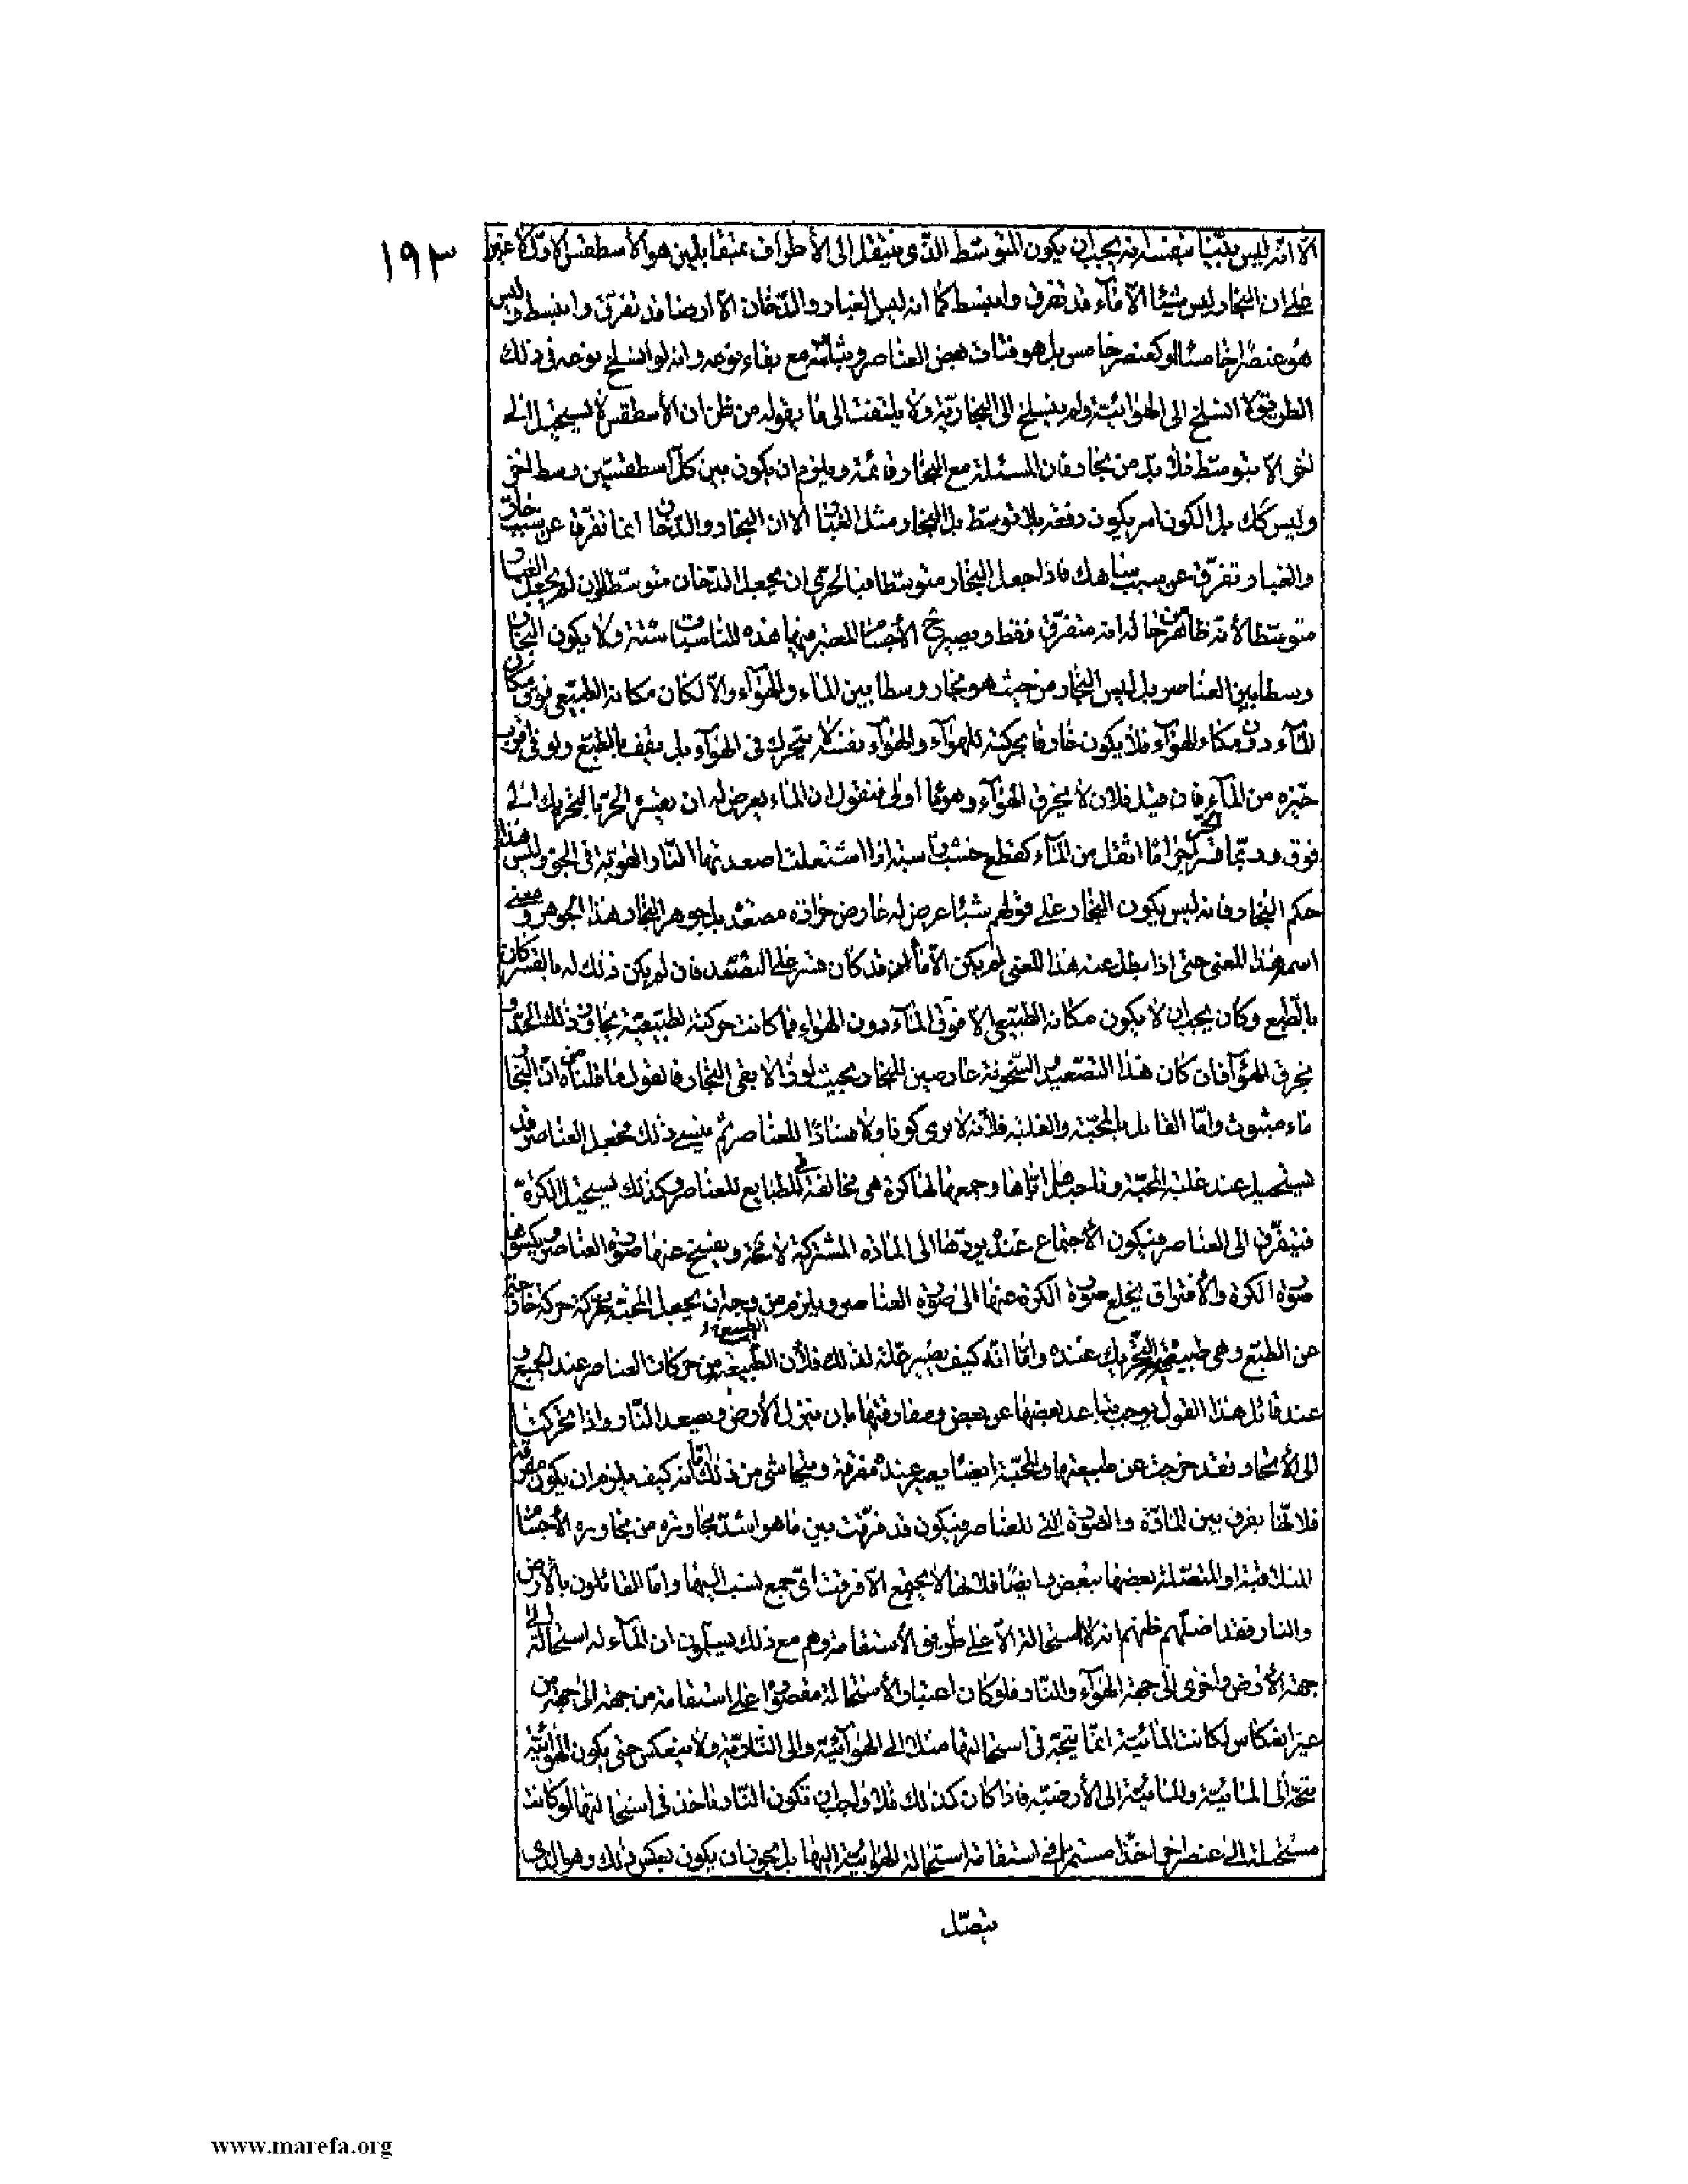 ١٩٣
الا انه ليس بيّنا بنفسه انه يجب ان يكون المتوسّط الذى ينتقل الى الأطراف بمتقابلين هو الأسطقس الاوّل لا غير
على ان البخار ليس شيئا الا ماء قد تفرق وانبسط كما انه ليس الغبار والدّخان الا ارضا قد تفرّق وانبسط وليس
هو عنصرا خامسا او كعنصر خامس بل هو فتات بعض العناصر وبثاثته مع بقاء نوعه وانه لو انسلخ نوعه فى ذلك
الطريق لا انسلخ الى الهوائية ولم ينسلخ الى البخارية ولا يلتفت الى ما يقوله من ظن ان الأسطقس لا يستحيل الى
اخر الا بتوسّط فلا بدّ من بخار فان المسئلة مع البخار قائمة ويلزم ان يكون بين كلّ اسطقسّين وسط اخر
وليس كك بل الكون امر يكون دفعة بلا توسّط بل البخار مثل الغبار الا ان البخار والدّخان انما تفرّقا عن سبب حارّ
والغبار تفرّق عن سبب هناك فاذا جعل البخار متوسّطا فبالحرى ان يجعل الدّخان متوسّطا وان لم يجعل الغبار
متوسّطا لأنّه ظاهر من حاله انه متفرّق فقط ويصير ح الأجسام المعتبر فيها هذه المناسبات ستة ولا يكون البخار
وسطا بين العناصر بل ليس البخار من حيث هو بخار وسطا بين الماء والهوآء والا لكان مكانه الطبيعى فوق مكان
المآء دون مكان الهوآء فلا يكون خارقا بحركته للهوآء والهوآء نفسه لا يتحرك فى الهوآء بل يقف بالطبع ولو فى اقرب
حيّزه من المآء فان قيل فلان لا يخرق الهوآء وهو ماء اولى فنقول ان الماء يعرض له ان يقسره الحرّ بالتحريك الى
فوق وربّما قسر الحرّ اجراما اثقل من المآء كقطع خشب يابسة اذا اشتعلت اصعدتها النّار القويّة فى الجوّ وليس هذا
حكم البخار فانه ليس يكون البخار على قولهم شيئا عرض له عارض حرارة مصعّد بل جوهر البخار هذا الجوهر ومعنى
اسمه هذا المعنى حتى اذا بطل عنه هذا المعنى لم يكن الا ماء قد كان قسر على التصعّد فان لم يكن ذلك له بالقسر كان
بالطبع وكان يجب ان لا يكون مكانه الطبيعى الا فوق المآء دون الهواء فما كانت حركته الطبيعيّة تجاوز ذلك الحدّ و
يخرق الهوآء فان كان هذا التصعيد والسّخونة عارضين للبخار بحيث لو زالا بقى البخار فالقول ما قلناه من انّ البخار
ماء مبثوث وامّا القائل بالمحبّة والغلبة فلأنه لا يرى كونا ولا فسادا للعناصر ثم ينسى ذلك فجعل العناصر قد
يستحيل عند غلبة المحبّة وجمعها لها كرة هى مخالفة فى الطبايع للعناصر وكذلك يستحيل الكرة
فيتفرّق الى العناصر فيكون الأجتماع عنده يردّها الى المادّة المشتركة لا محة ويفسخ عنها صورة العناصر ويكسوها
صورة الكرة والأفتراق يخلع صورة الكرة عنها الى صورة العناصر ويلزم من وجه ان يجعل المحبّة محركة حركة خارجة
عن الطبع وهى طبيعيّة التحريك عنده وامّا انّه كيف يصير علّة لذلك فلأن الطبيعة من حركات العناصر عند الجميع و
عند قائل هذا القول يوجب تباعد بعضها عن بعض ومفارقتها بان ينزل الأرض ويصعد النّار واذا تحركت
الى الأتحاد فقد خرجت عن طبيعتها والمحبّة ايضا يصير عنده مفرقة ويتحاشى من ذلك امّا انه كيف يلزم ان يكون مفرّقة
فلانّها يفرق بين المادّة والصورة التى للعناصر فيكون قد فرّقت بين ما هو اشدّ مجاورة من مجاورة الأجسام
المتلاقية او المتّصلة بعضها ببعض وايضا فانها لا يجتمع الا فرقت اىّ جمع نسب اليها وامّا القائلون بالأرض
والنار فقد اضلّهم ظنهم انه لا استحالة الا على طريق الأستقامة وهم مع ذلك يسلّمون ان المآء له استحالة الى
جهة الأرض واخرى الى جهة الهوآء والنّار فلو كان اعتبار الأستحالة مقصورا على استقامة من جهة الى جهة من
غير انعكاس لكانت المائية انّما يتّجه فى استحالتها مثلا الى الهوآئية والى النّاريّة ولا ينعكس حتى يكون الهوائيّة
متّجه الى المائية والمائية الى الأرضيّة فاذا كان كذلك فلا واجب ان تكون النّار فاخذ فى استحالتها لو كانت
مستحيلة الى عنصر اخر اخذا مستمرا فى استقامة استحالة الهوائية اليها بل يجوز ان يكون بعكس ذلك وهو الذى
يتصّل
www.marefa.org